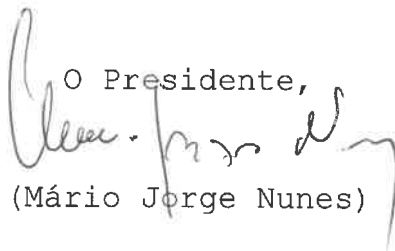 O Presidente,
(Mário Jorge Nunes)